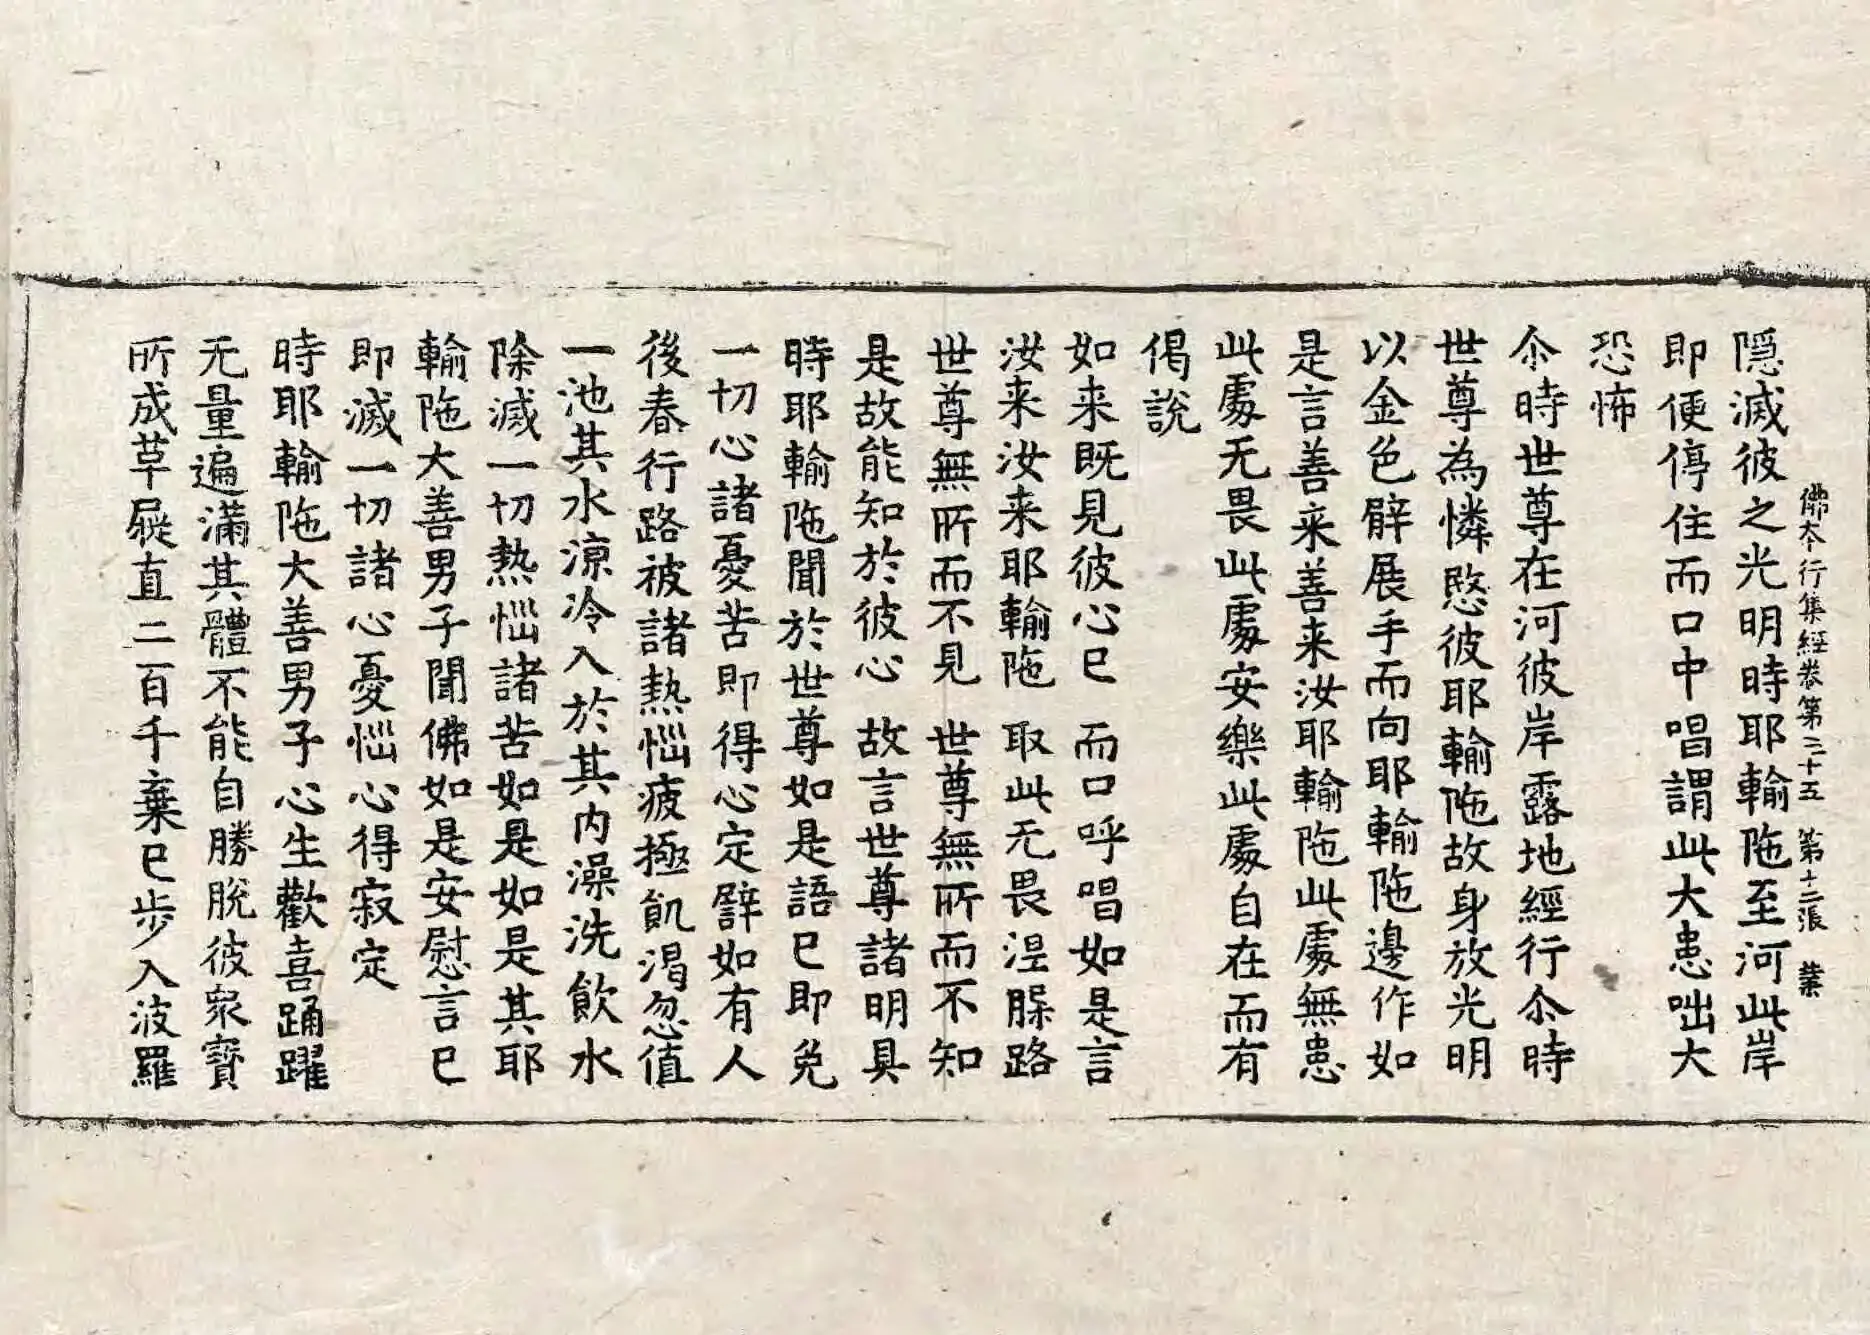 佛本行集經卷第三十五　第十二張　業
隱滅彼之光明時耶輸陁至河此岸
即便停住而口中唱謂此大患咄大
恐怖
尒時世尊在河彼岸露地經行尒時
世尊為憐愍彼耶輸陁故身放光明
以金色臂展手而向耶輸陁邊作如
是言善来善来汝耶輸陁此處無患
此處无畏此處安樂此處自在而有
偈說
如来既見彼心已　而口呼唱如是言
汝来汝来耶輸陁　取此无畏涅槃路
世尊無所而不見　世尊無所而不知
是故能知於彼心　故言世尊諸明具
時耶輸陁聞於世尊如是語已即免
一切心諸憂苦即得心定譬如有人
後春行路被諸熱惱疲極飢渴忽值
一池其水涼冷入於其内澡洗飲水
除滅一切熱惱諸苦如是如是其耶
輸陁大善男子聞佛如是安慰言已
即滅一切諸心憂惱心得寂定
時耶輸陁大善男子心生歡喜踊躍
无量遍滿其體不能自勝脫彼眾寶
所成草屣直二百千棄已步入波羅